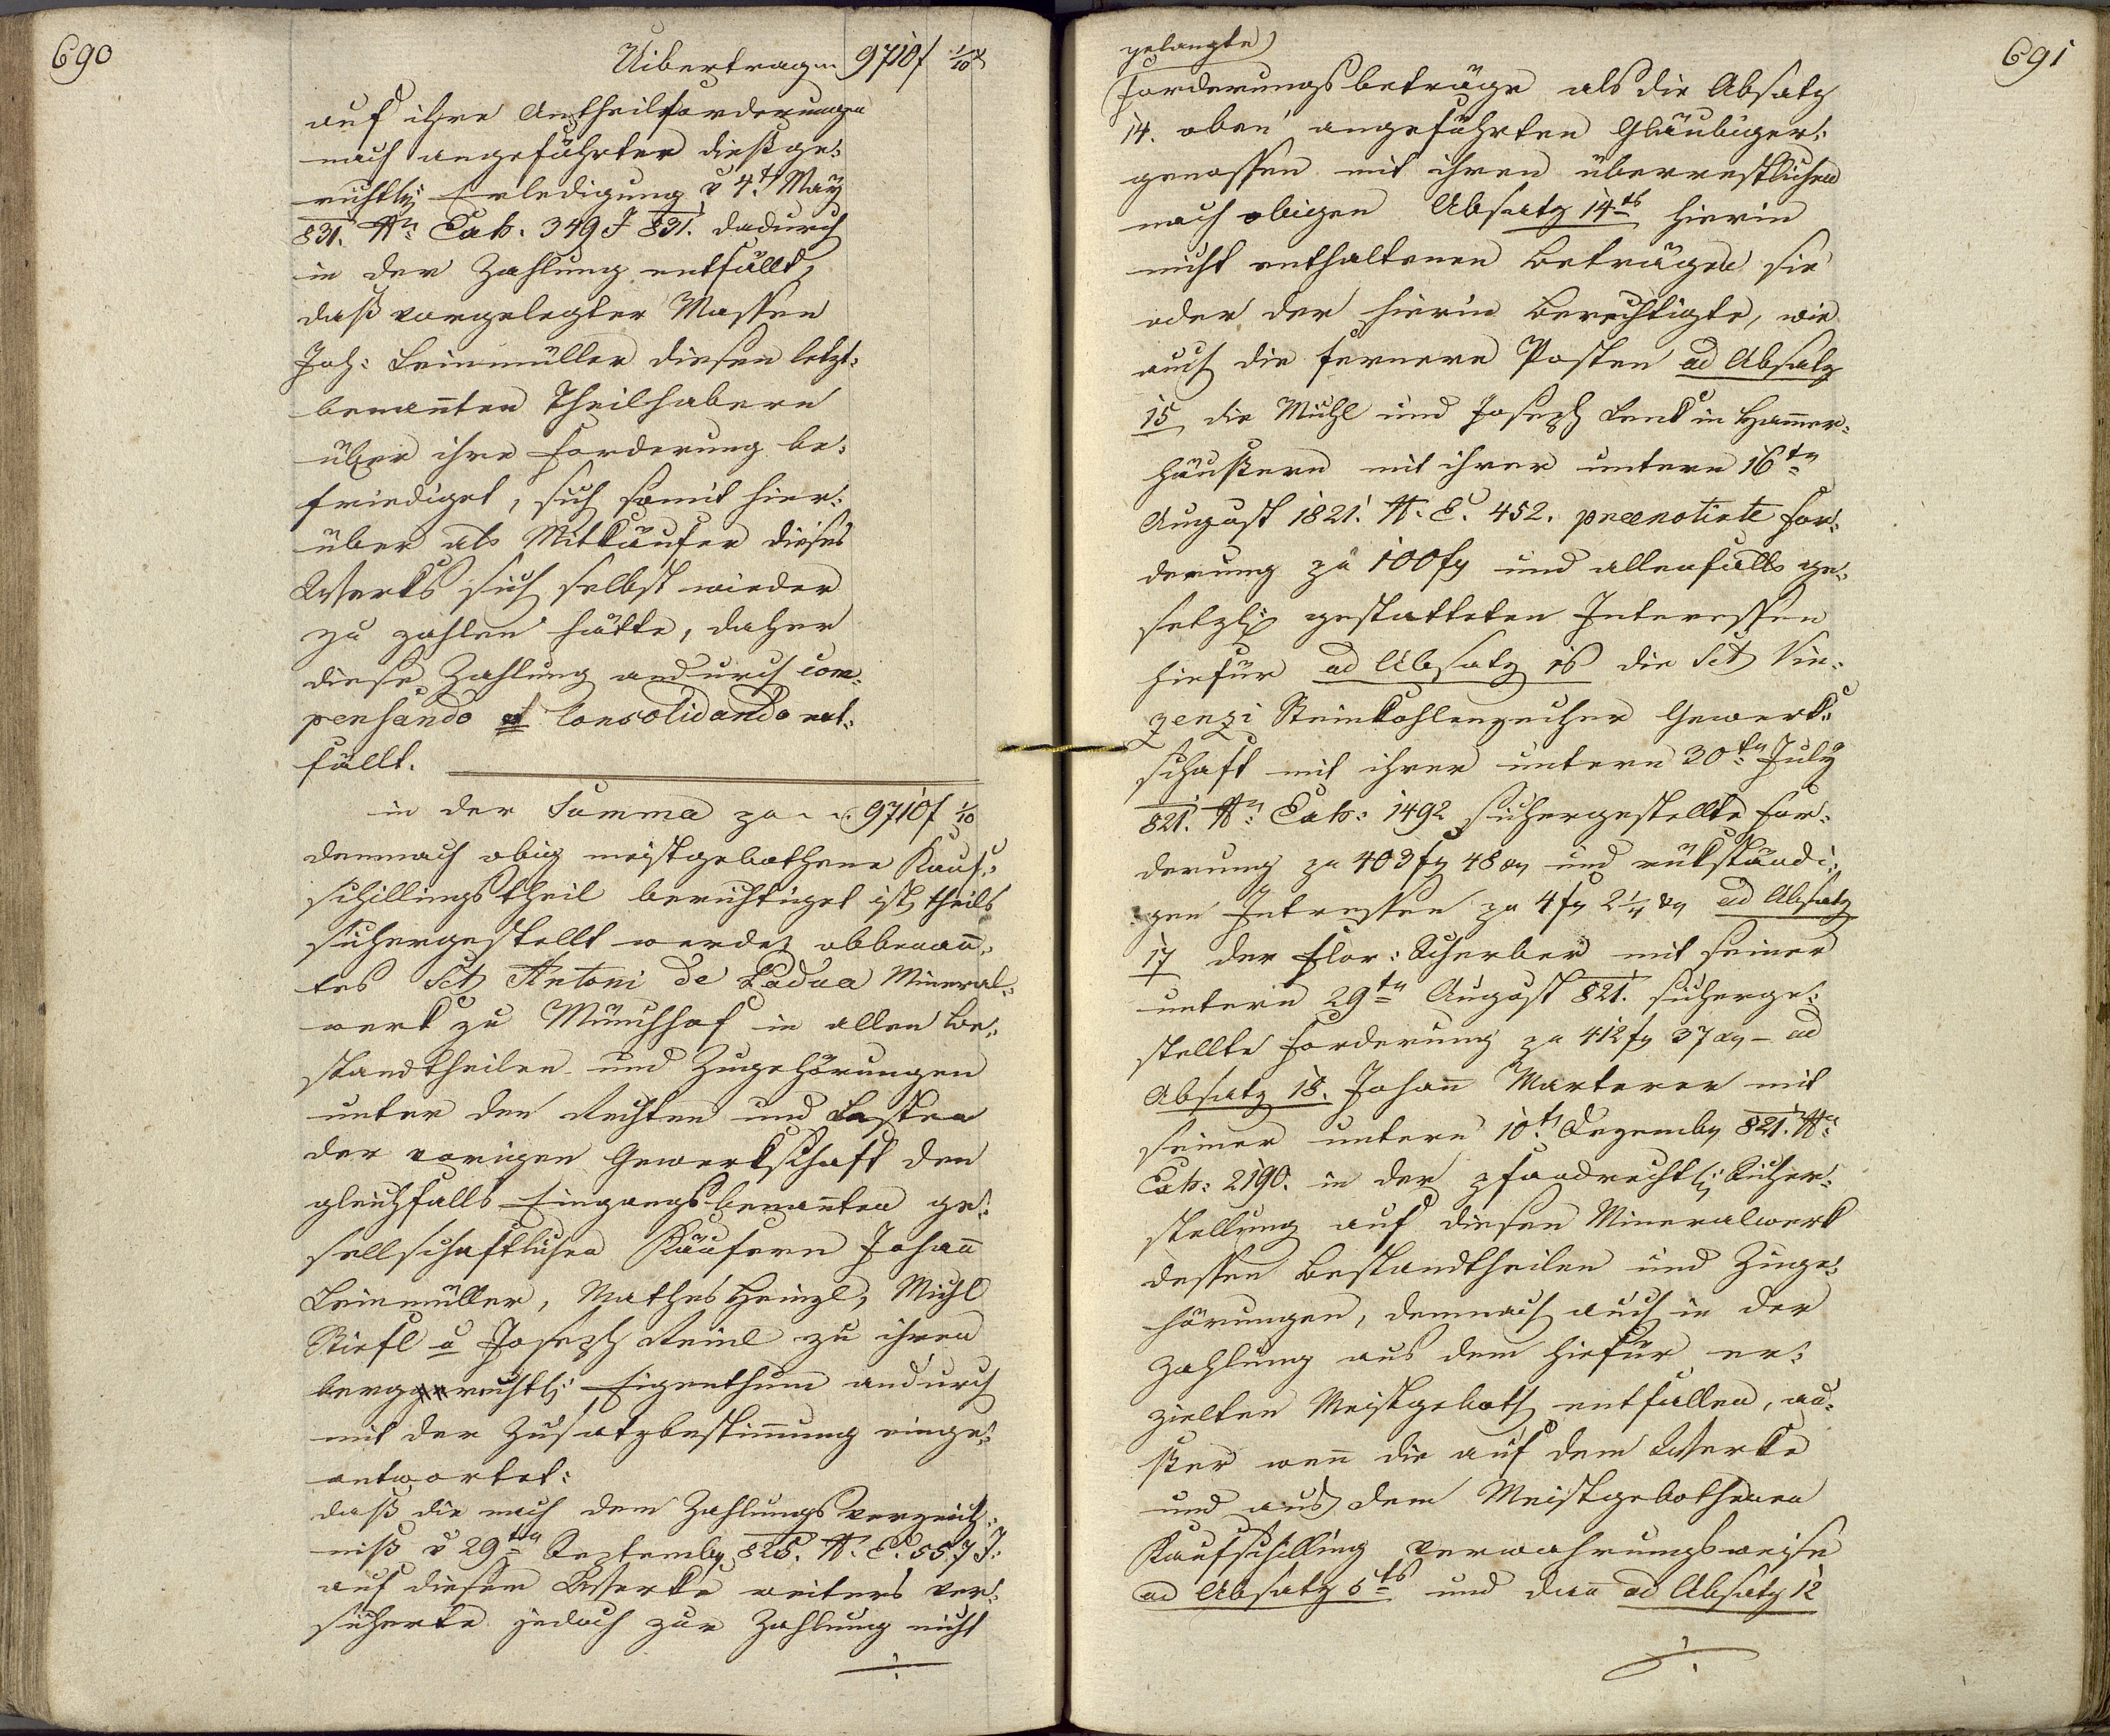 690
Uibertrag 9710 f 1/10 x
auf ihre Antheilforderungen
nach angeführter dießge:
richtlr Erledigung v 4t May
831. Nn Exh. 349 J 831. dadurch
in der Zahlung entfällt,
daß vorgelegter Massen
Joh: Leinmüller diesen letzt:
benañten Theilhabern
über ihre Forderung be:
friediget, sich somit hier:
über als Mitkäufer dieses
Werks sich selbst wieder
zu zahlen hätte, daher
diese Zahlung andurch com:
pensando et Consolidando ent:
fällt.
in der Summa zu 9710 f 1/10
demnach obig meistgebothene Kauf:
schillingstheil berichtiget ist, theils
sichergestellt werde, obbenañ:
tes Sct Antoni de Padua Mineral:
werk zu Münchhof in allen Be:
standtheilen und Zugehörungen
unter den Rechten und Lasten
der vorigen Gewerkschaft den
gleichfalls Eingangsbenañten ge:
sellschaftlichen Käufern Johañ
Leinmüller, Mathes Heinzl, Michl
Stiefl u Joseph Reinl zu ihren
bergrechtl: Eigenthum andurch
mit der Zusatzbestim̄ung einge:
antwortet:
daß die nach dem Zahlungsverzeich:
niß v 29ten Septembr 825. N. E. 557 J:
auf diesem Werke weiters ver:
sicherte jedoch zur Zahlung nicht
691
gelangte
Forderungsbeträge als die Absatz
14. oben angeführten Gläubiger:
genossen mit ihren überrestlichen
nach obigen Absatz 14ts hierin
nicht enthaltenen Beträgen sie
oder der hierin Berechtigte, wie
auch die fernere Posten ad Absatz
15 die Michl und Joseph Lenk in Ham̄er:
häußern mit ihrer untern 16tn
August 1821. N. E. 452. praenotirte For:
derung zu 100 fr und allenfalls ge:
setzlich gestatteten Interessen
hiefür ad Absatz 16 die Sct Vin:
zenzi Steinkohlenzecher Gewerk:
schaft mit ihrer untern 30tn July
821. Nn Exh: 1492 sichergestellte For:
derung zu 403 fr 48 xr und rükständi:
gen Intressen zu 4 fr 2 1/4 xr ad Absatz
17 der Flor: Scherber mit seiner
untern 29tn August 821. sicherge:
stellte Forderung zu 412 fr 37 xr – ad
Absatz 18. Johañ Marterer mit
seiner untern 10t Dezembr 821. Nn
Exh: 2190. in der pfandrechtlr Sicher:
stellung auf diesen Mineralwerk
dessen Bestandtheilen und Zuge:
hörungen, demnach auch in der
Zahlung aus dem hiefür er:
zielten Meistgeboth entfallen, au:
ßer weñ die auf dem Werke
und aus dem Meistgebothenen
Kaufschilling verwahrungsweise
ad Absatz 6ts und dañ ad Absatz 12